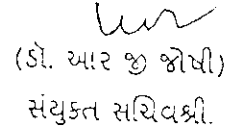 (ડૉ. આર જી જોષી)
સંયુક્ત સચિવશ્રી.